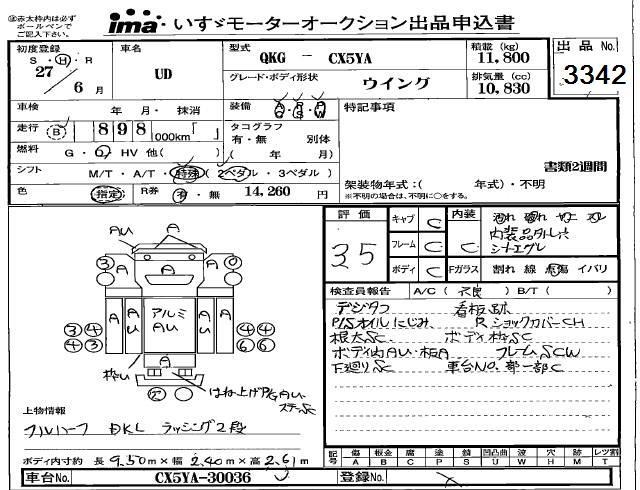 赤太枠内は必ず
ボールペンで
ご記入下さい。
ima いすゞモーターオークション出品申込書
初度登録
S・H・R
27/6月
車名
UD
型式
QKG － CX5YA
グレード・ボディ形状
ウイング
積載 (kg)
11,800
排気量 (cc)
10,830
出品 No.
3342
車検 年・月・抹消
装備 A/C P/S P/W
走行 B 898000km「 」
タコグラフ
有・無 別体
( 年 月)
燃料 G・O・HV 他( )
シフト M/T・A/T・特殊(2ペダル・3ペダル)
色 指定
R券 有・無 14,260 円
特記事項
書類2週間
架装物年式:( 年式)・不明
※不明の場合は、不明に○をする。
評価
35
キャブ C
フレーム C
ボディ C
内装 C
内装品外し穴
シートエグレ
Fガラス 割れ 線 点傷 イバリ
検査員報告 A/C( 不良 ) B/T( )
デジタコ 看板跡
P/Sオイルにじみ R ショックカバーCH
根太SC ボディ枠SC
ボディ内AU・板A フレームSCW
下廻りSC 車台NO.部一部C
AU
A
アルミ
AU
枠い
はね上げP/G AU・
ステーSC
上物情報
フルハーフ DKL ラッシング2段
ボディ内寸約 長 9.50m×幅 2.40m×高 2.61m
記号 傷 A 板金 B 腐 C 塗 P 錆 S 凹凸曲 U 波 W 穴 H 跡 M レツ割 T
車台No. CX5YA-30036
登録No.